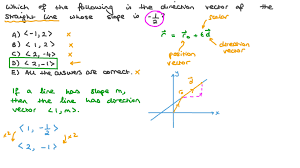 Which of the following is the direction vector of the
straight line whose slope is -1/2?
A) <-1, 2> x
B) <1, 2> x
C) <2, -4> x
D) <2, -1> ←
E) All the answers are correct. x
If a line has slope m,
then the line has direction
vector <1, m>.
<1, -1/2>
x2 x2
<2, -1>
scalar
r = r₀ + t v
position
vector
direction
vector
y
x